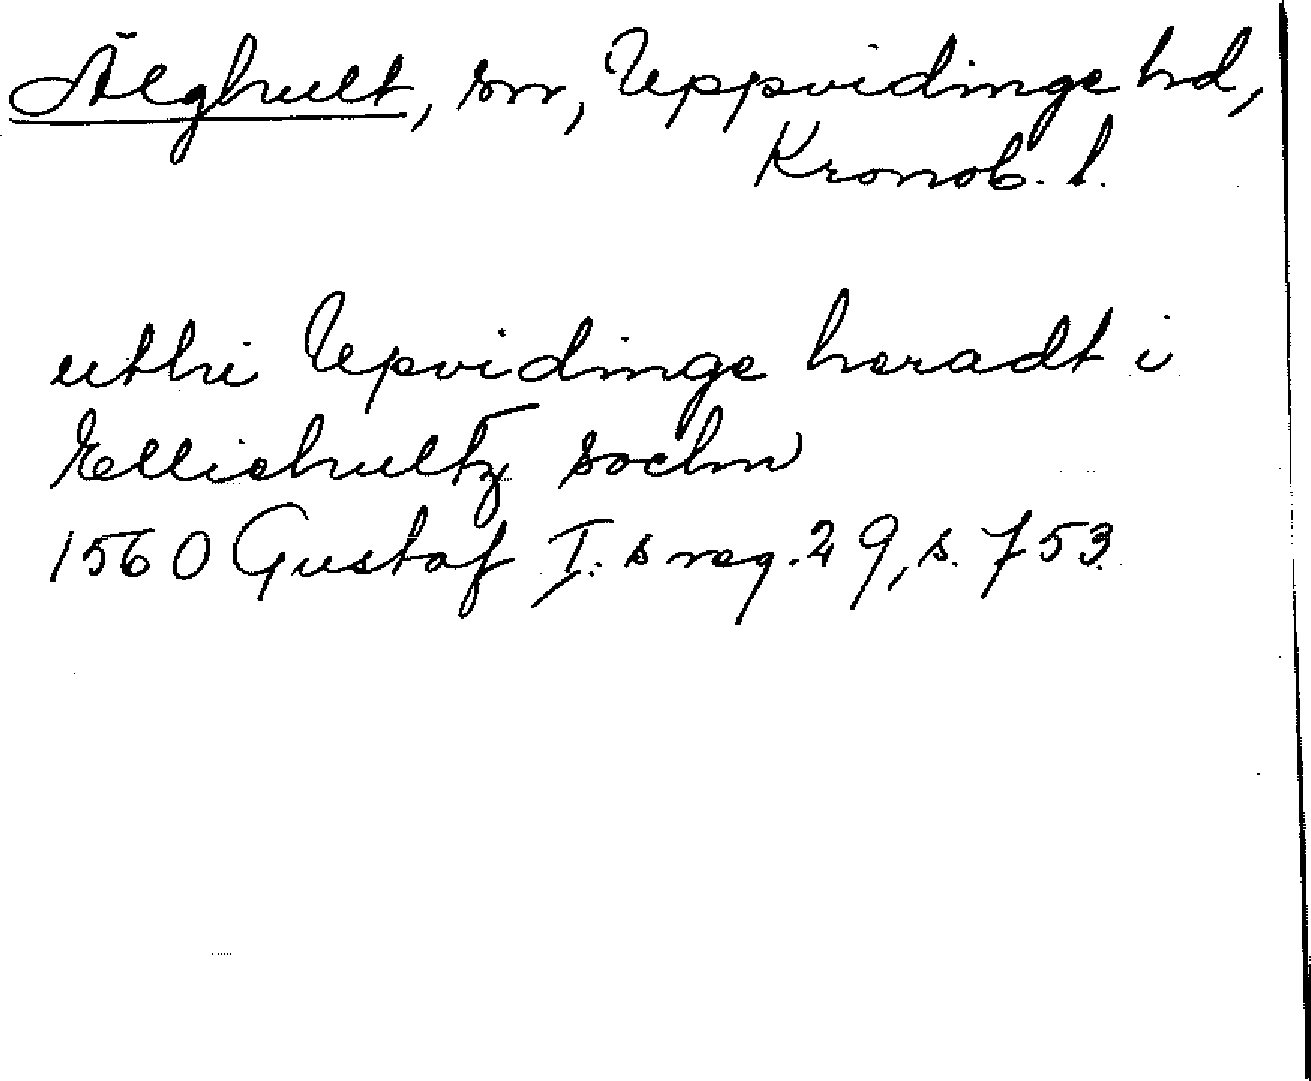 Älghult, sn, Uppvidinge hd,
Kronob. l.
uthi Upvidinge heradt i
Ellishultz sochn
1560 Gustaf I:s reg. 29, s. 753